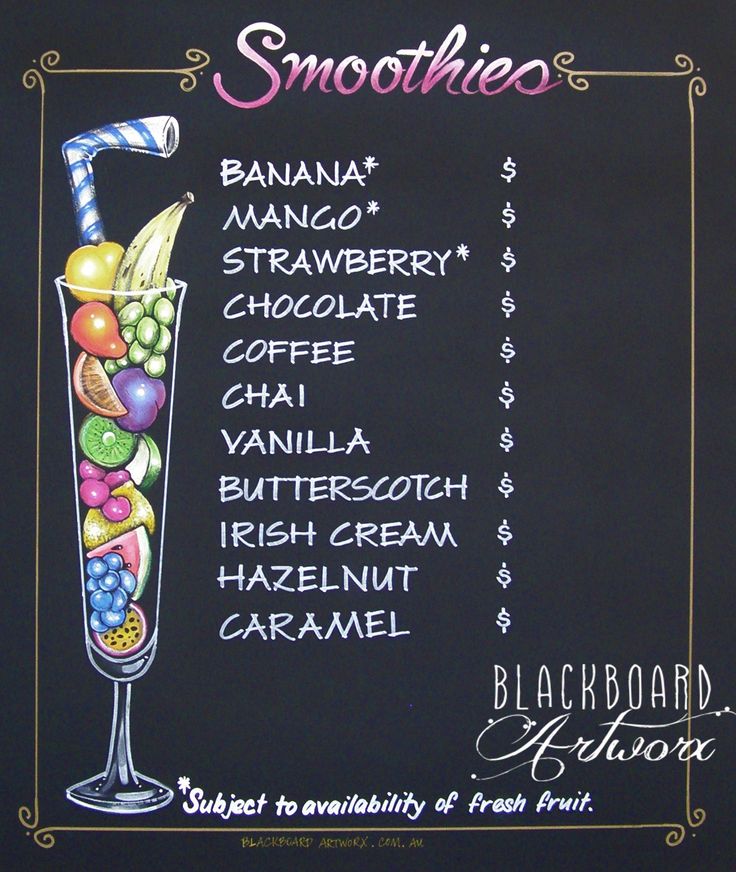 Smoothies
BANANA* $
MANGO* $
STRAWBERRY* $
CHOCOLATE $
COFFEE $
CHAI $
VANILLA $
BUTTERSCOTCH $
IRISH CREAM $
HAZELNUT $
CARAMEL $
BLACKBOARD
Artworx
*Subject to availability of fresh fruit.
BLACKBOARD ARTWORX.COM.AU